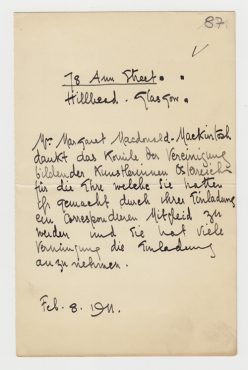 87
78 Ann Street.
Hillhead. Glasgow.
Mrs. Margaret Macdonald-Mackintosh
dankt das Komite der Vereinigung
bildender Künstlerinnen Österreichs
für die Ehre welche Sie hatten
ihr gemacht durch ihrer Einladung
ein Correspondieren Mitglied zu
werden und Sie hat viele
die Einladung
anzunehmen.
Feb. 8. 1911.